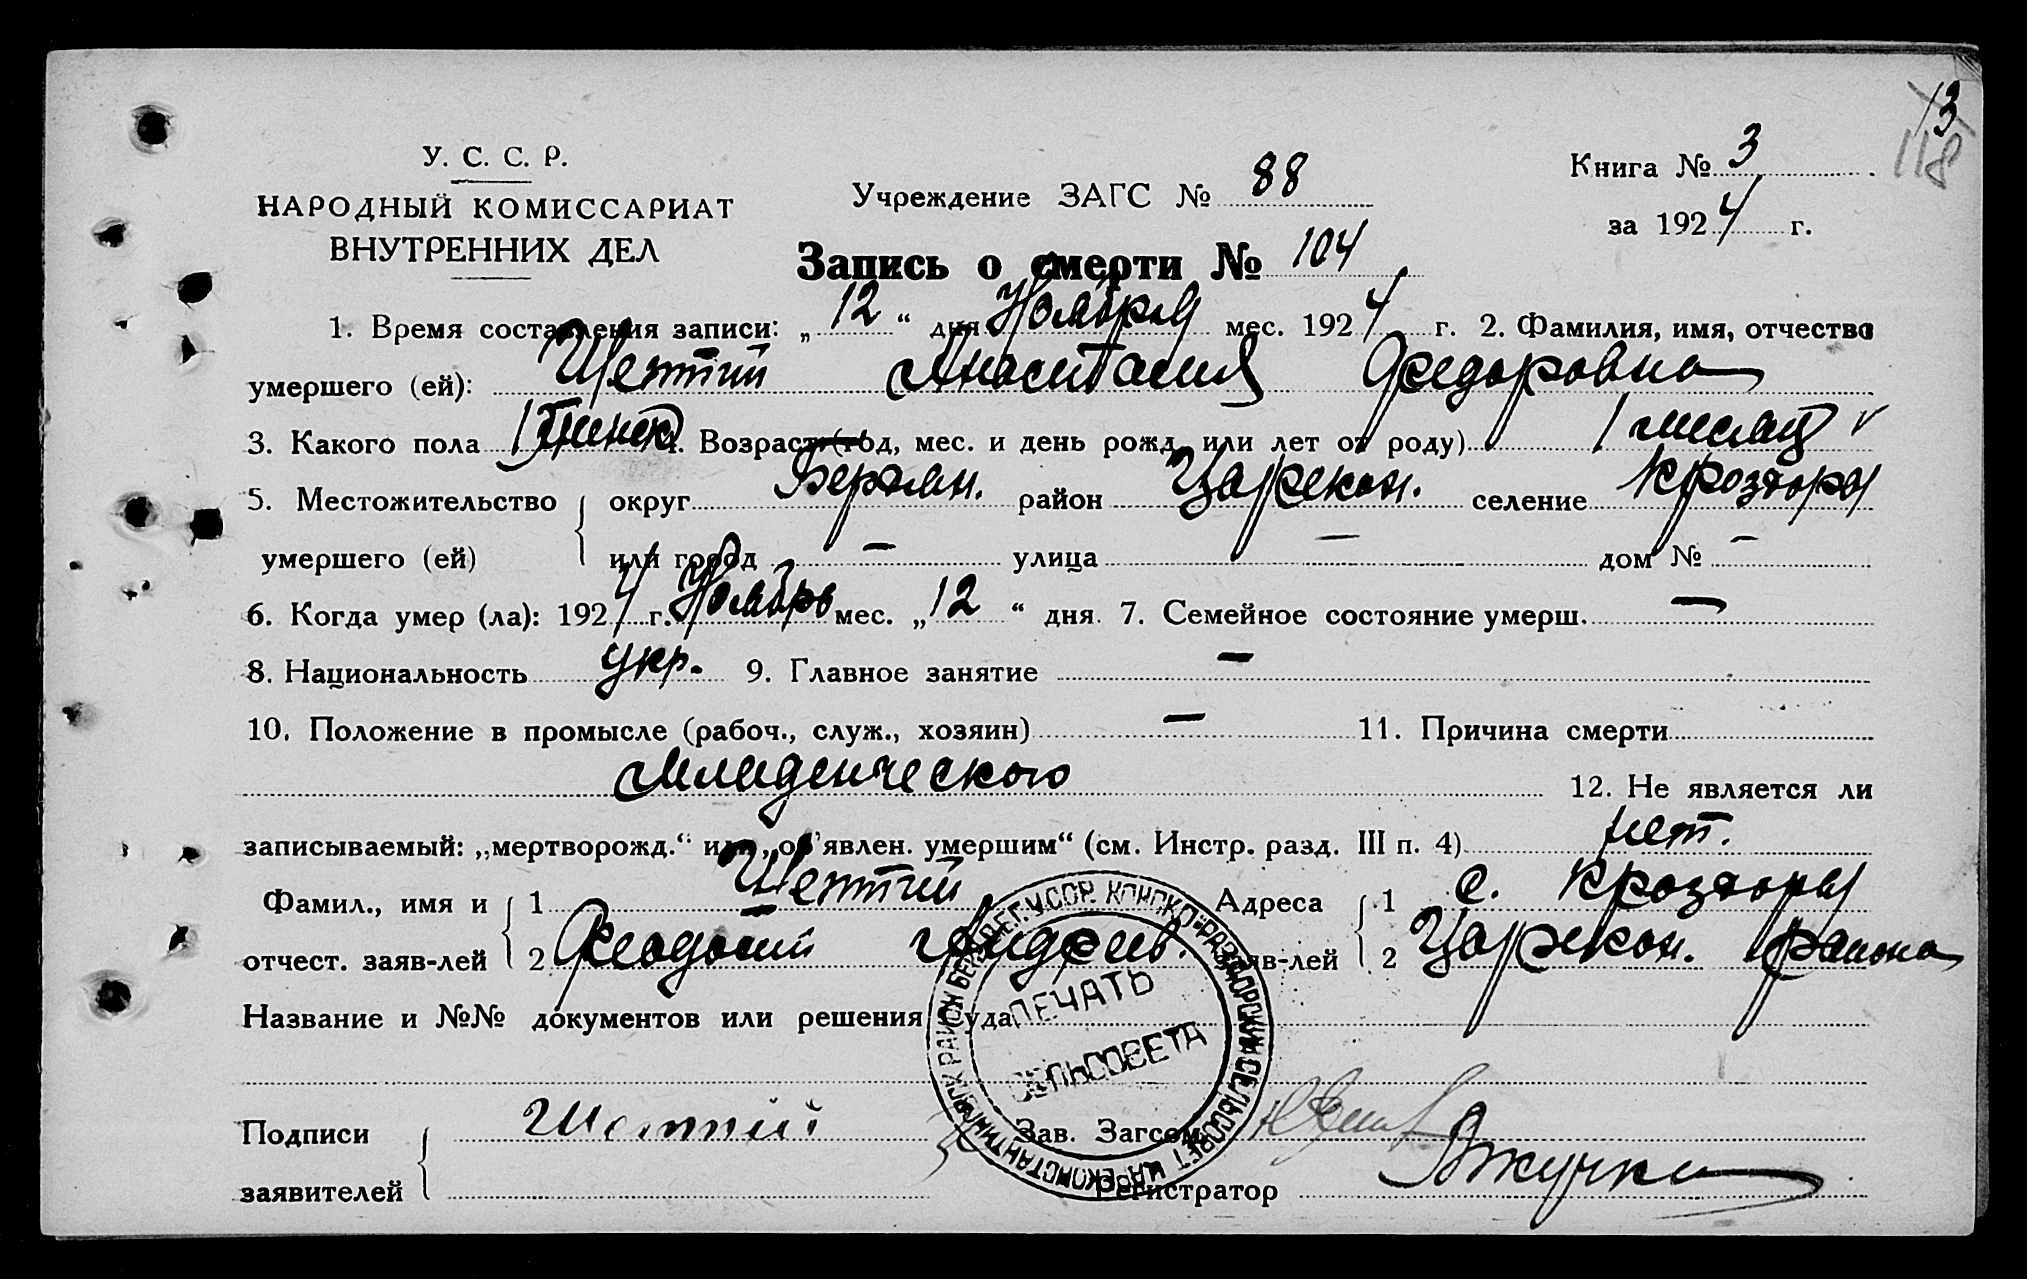 13
118
У. С. С. Р.
НАРОДНЫЙ КОМИССАРИАТ
ВНУТРЕННИХ ДЕЛ
Учреждение ЗАГС № 88
Книга № 3
за 1924 г.
Запись о смерти № 104
1. Время составления записи: „12“ дня Ноября мес. 1924 г. 2. Фамилия, имя, отчество
умершего (ей): Шептий Анастасия Федоровна
3. Какого пола женск 4. Возраст (год, мес. и день рожд. или лет от роду) 1 месяц
5. Местожительство округ Бердян. район Царекон. селение К роздоры
умершего (ей) или город — улица — дом № —
6. Когда умер (ла): 1924 г. Ноябрь мес. „12“ дня. 7. Семейное состояние умерш. —
8. Национальность укр. 9. Главное занятие —
10. Положение в промысле (рабоч., служ., хозяин) — 11. Причина смерти
Младенческого
12. Не является ли
записываемый: „мертворожд.“ или „об'явлен. умершим“ (см. Инстр. разд. III п. 4) нет.
Фамил., имя и 1 Шептий Адреса 1 с. К роздоры
отчест. заяв-лей 2 Феодосий Андреев. заяв-лей 2 Царекон. района
Название и №№ документов или решения суда
ПЕЧАТЬ
СЕЛЬСОВЕТА
КОНСКО-РАЗДОРСКИЙ СЕЛЬСОВЕТ ЦАРЕКОНСТАНТИН
Подписи Шептий Зав. Загсом
заявителей Регистратор